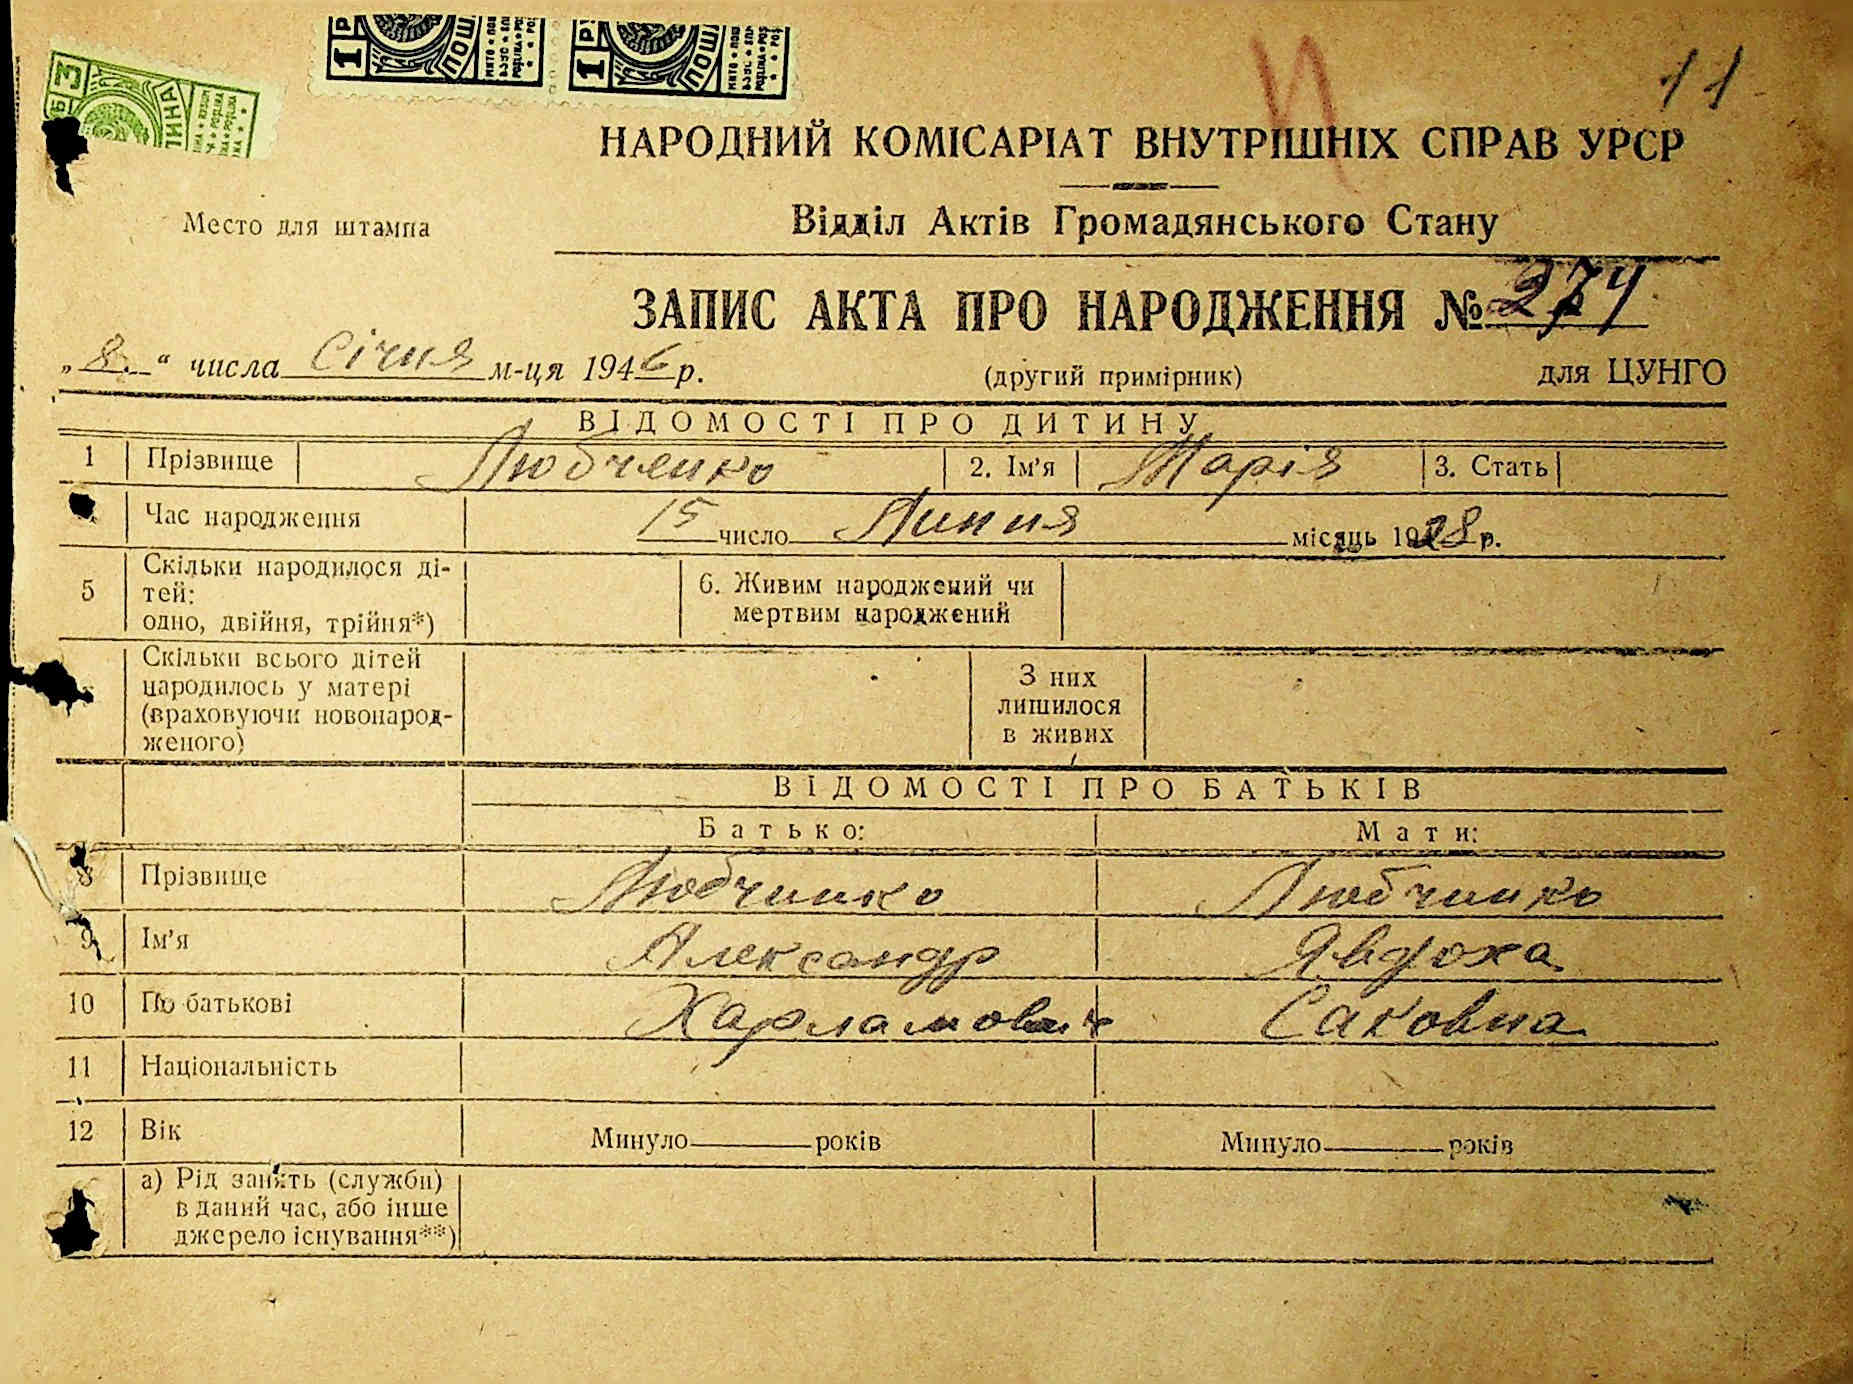 11
НАРОДНИЙ КОМІСАРІАТ ВНУТРІШНІХ СПРАВ УРСР
Место для штампа
Відділ Актів Громадянського Стану
ЗАПИС АКТА ПРО НАРОДЖЕННЯ № 274
„8.“ числа Січня м-ця 1946 р. (другий примірник) для ЦУНГО
ВІДОМОСТІ ПРО ДИТИНУ
1 Прізвище Любченко 2. Ім'я Марія 3. Стать
Час народження 15 число Липня місяць 1928 р.
5 Скільки народилося ді-
тей:
одно, двійня, трійня*)
6. Живим народжений чи
мертвим народжений
Скільки всього дітей
народилось у матері
(враховуючи новонарод-
женого)
З них
лишилося
в живих
ВІДОМОСТІ ПРО БАТЬКІВ
Батько: Мати:
8 Прізвище Любчинко Любчинко
9 Ім'я Александр Явдоха
10 По батькові Харламович Саковна
11 Національність
12 Вік Минуло року Минуло років
а) Рід занять (служби)
в даний час, або інше
джерело існування**)